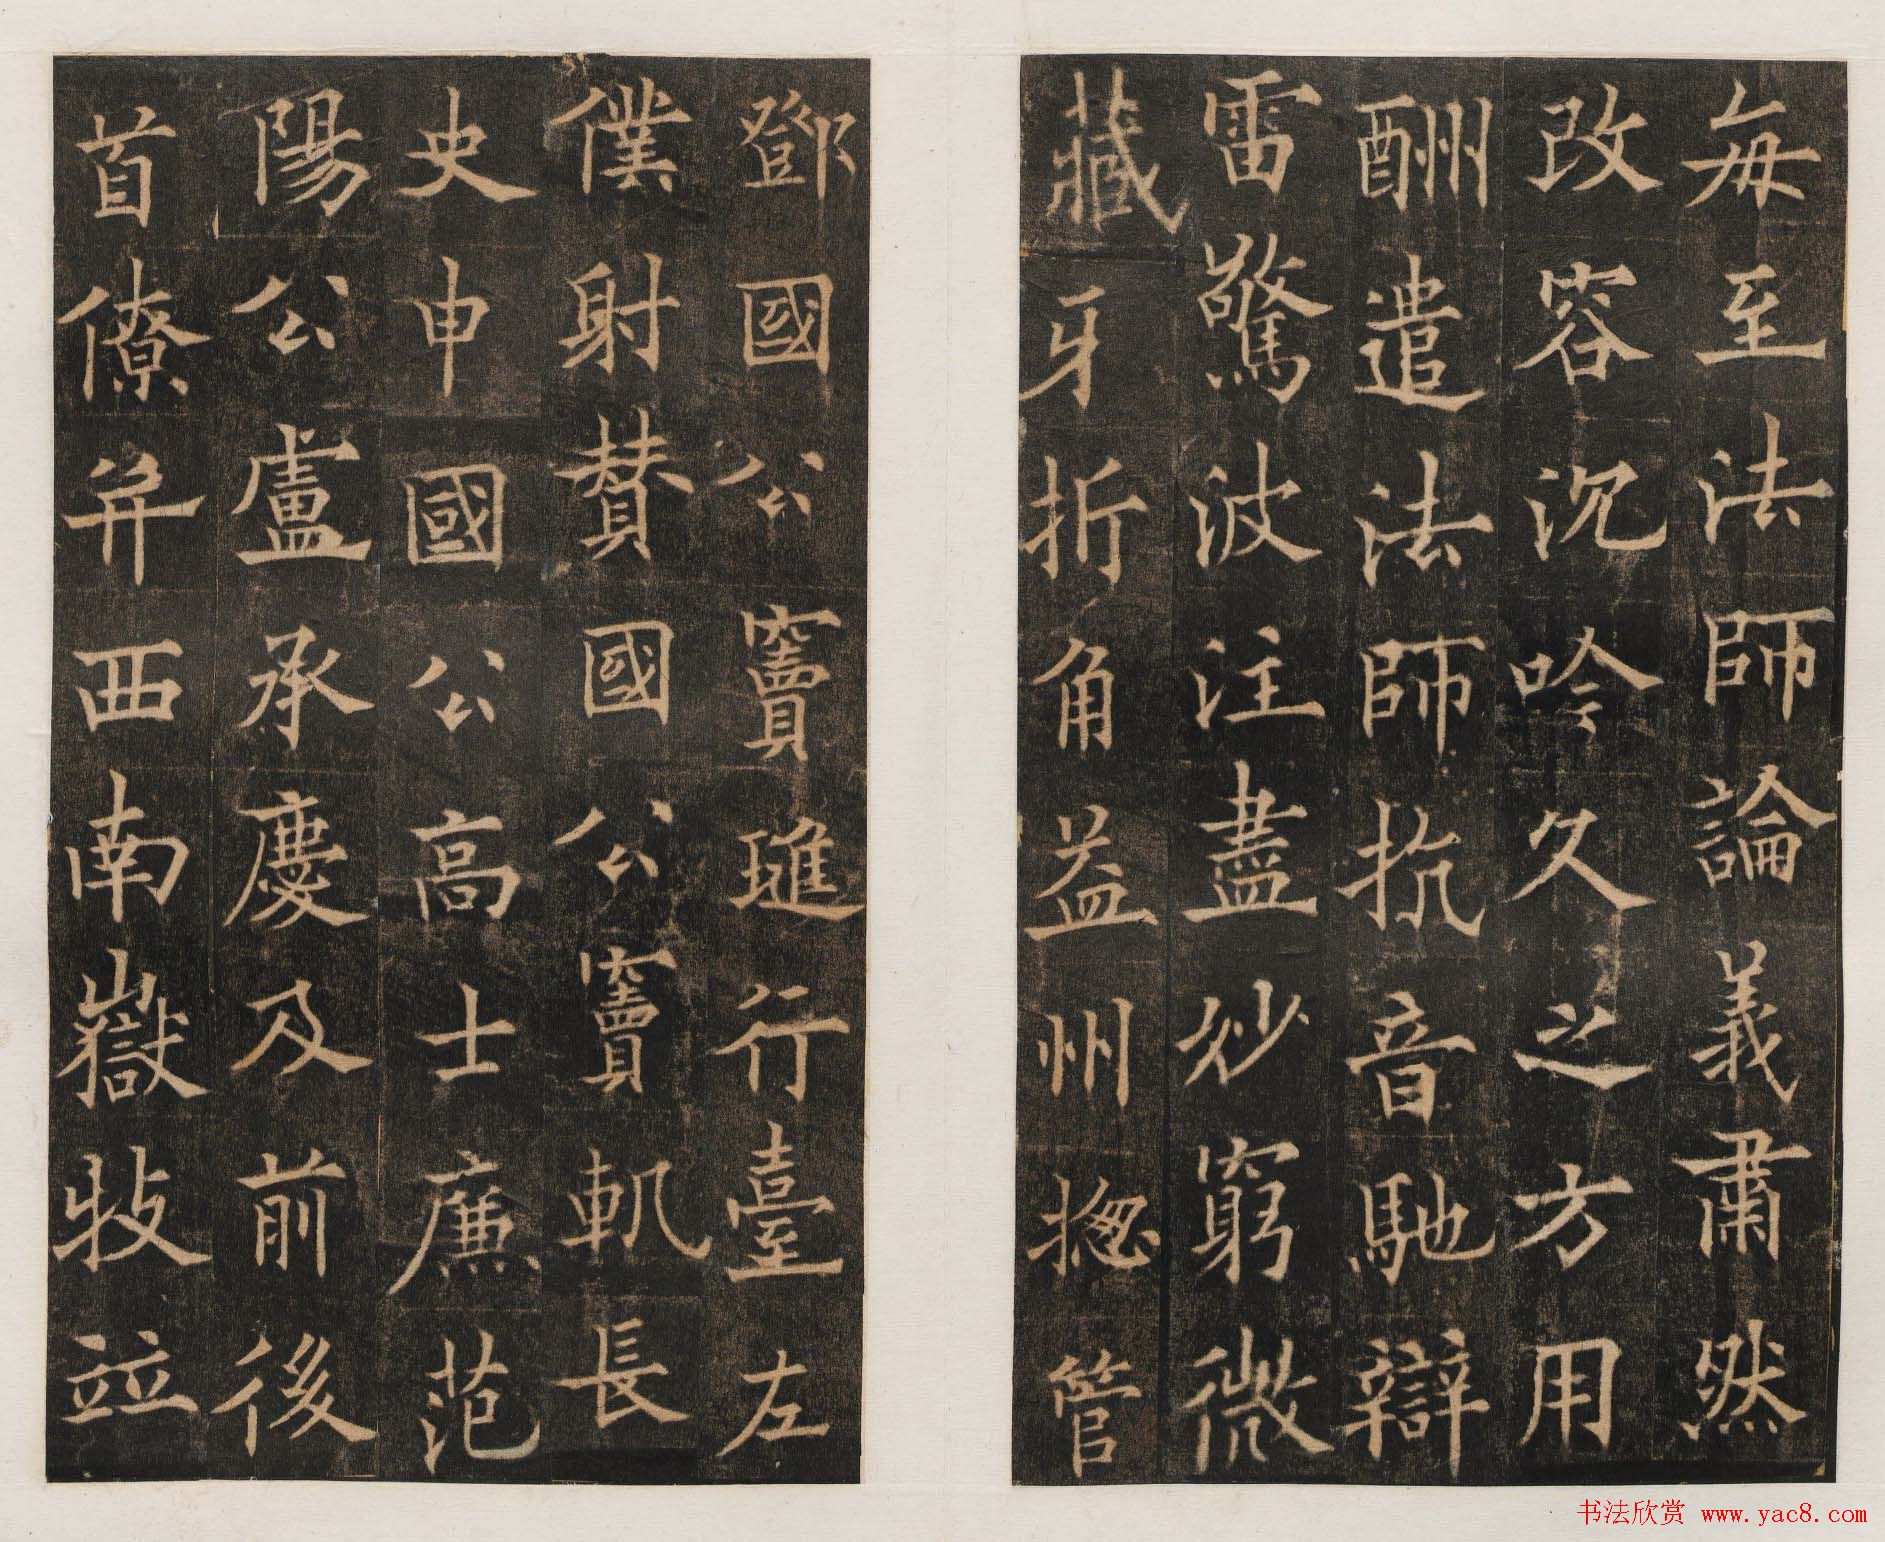 每至法師論義肅然
改容沉吟久之方用
酬遣法師抗音馳辯
雷驚波注盡妙窮微
藏牙折角益州捴管
鄧國公竇璡行臺左
僕射贊國公竇軌長
史申國公高士廉范
陽公盧承慶及前後
首僚并西南嶽牧竝
书法欣赏 www.yac8.com